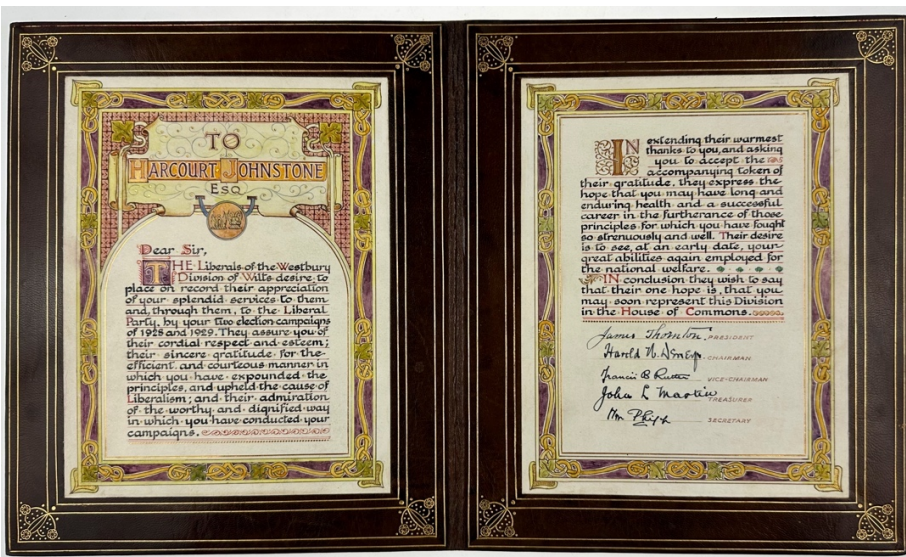 TO
HARCOURT JOHNSTONE
ESQ
Dear Sir,
THE Liberals of the Westbury
Division of Wilts desire to
place on record their appreciation
of your splendid services to them
and, through them, to the Liberal
Party, by your two election campaigns
of 1928 and 1929. They assure you of
their cordial respect and esteem;
their sincere gratitude for the
efficient and courteous manner in
which you have expounded the
principles, and upheld the cause of
Liberalism; and their admiration
of the worthy and dignified way
in which you have conducted your
campaigns.
IN extending their warmest
thanks to you, and asking
you to accept the
accompanying token of
their gratitude, they express the
hope that you may have long and
enduring health and a successful
career in the furtherance of those
principles for which you have fought
so strenuously and well. Their desire
is to see, at an early date, your
great abilities again employed for
the national welfare.
IN conclusion they wish to say
that their one hope is, that you
may soon represent this Division
in the House of Commons.
James Thornton. PRESIDENT
Harold CHAIRMAN
Francis B Rutter VICE-CHAIRMAN
John L Martin TREASURER
Wm SECRETARY